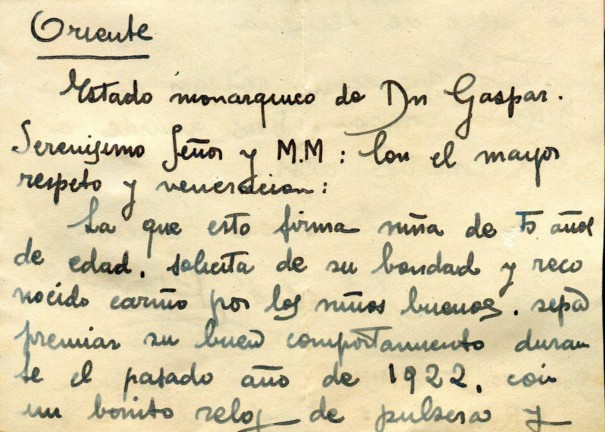 Oriente
Estado monarquico de Dn Gaspar.
Serenisimo Señor y M.M : Con el mayor
respeto y veneracion :
La que esto firma niña de 5 años
de edad, solicita de su bondad y reco
nocido cariño por los niños buenos, sepa
premiar su buen comportamiento duran
te el pasado año de 1922, con
un bonito reloj de pulsera y